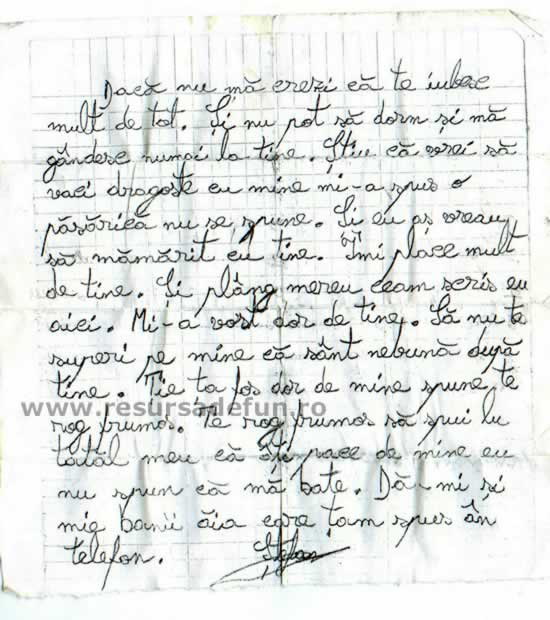 Dacă nu mă crezi că te iubesc
mult de tot. Și nu pot să dorm și mă
gândesc numai la tine. Știu că vrei să
vaci dragoste cu mine mi-a spus o
păsărică nu se spune. Și eu aș vreau
să mămărit cu tine. Îmi place mult
de tine. Și plâng mereu ceam scris eu
aici. Mi-a vost dor de tine. Să nu te
superi pe mine că sânt nebună după
tine. Ție ta fos dor de mine spune, te
rog frumos. Te rog frumos să spui lu
tatăl meu că place de mine eu
nu spun că mă bate. Dă mi și
mie banii ăia care țam spus ân
telefon.
www.resursadefun.ro